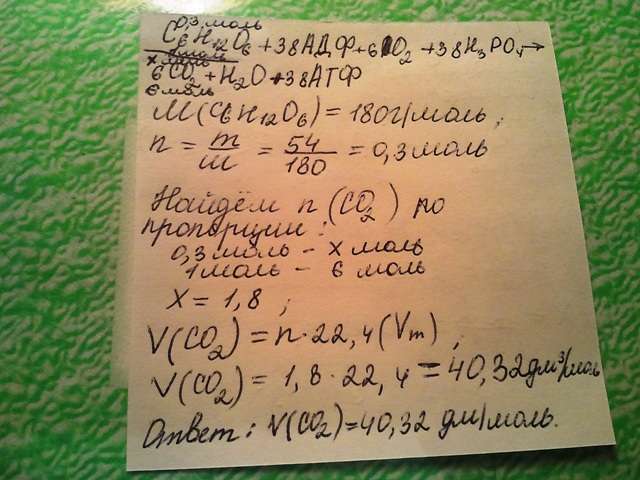 0,3 моль
C₆H₁₂O₆ + 38АДФ + 6O₂ + 38H₃PO₄→
1 моль
x моль
6CO₂ + H₂O + 38АТФ
6 моль
M(C₆H₁₂O₆) = 180г/моль;
n = m/M = 54/180 = 0,3 моль
Найдём n (CO₂) по
пропорции:
0,3 моль – x моль
1 моль – 6 моль
x = 1,8 ;
V(CO₂) = n·22,4(Vm) ;
V(CO₂) = 1,8·22,4 = 40,32 дм³/моль
Ответ: V(CO₂)=40,32 дм/моль.